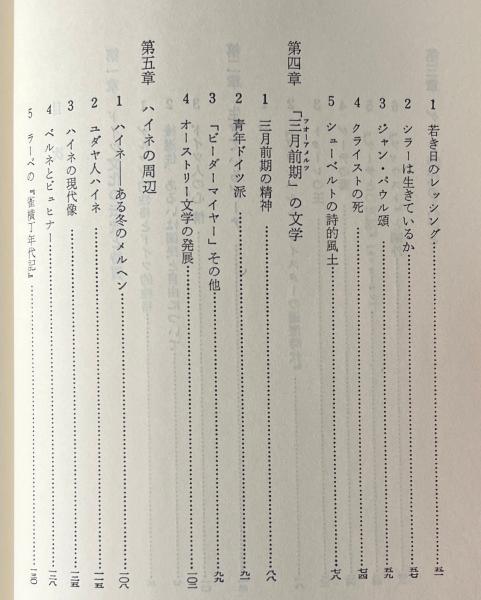 1 若き日のレッシング……五一
2 シラーは生きているか……五七
3 ジャン・パウル頌……六九
4 クライストの死……七四
5 シューベルトの詩的風土……七八
第四章 「三月前期」の文学
フォーアメルツ
1 三月前期の精神……八八
2 青年ドイツ派……九一
3 「ビーダーマイヤー」その他……九九
4 オーストリー文学の発展……一〇二
第五章 ハイネの周辺
1 ハイネ――ある冬のメルヘン……一〇八
2 ユダヤ人ハイネ……一一五
3 ハイネの現代像……一二五
4 ベルネとビュヒナー……一二八
5 ラーベの『雀横丁年代記』……一三〇